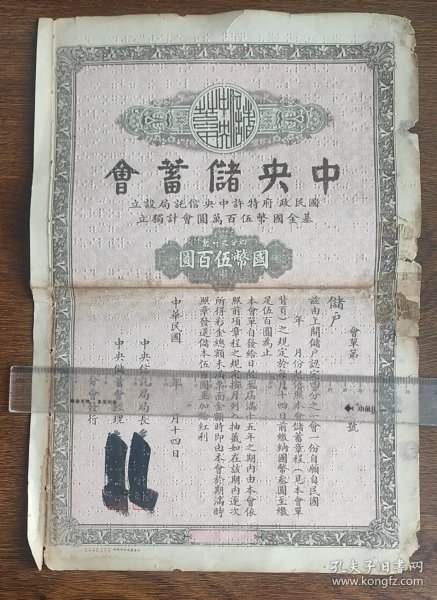 中央儲蓄會
國民政府特許中央信託局設立
基金國幣伍百萬圓會計獨立
四分之一會
國幣伍百圓
會單第
號
儲戶
茲由上開儲戶認定四分之一會一份自願自民國
年 月份起按照本會儲蓄章程(見本會單
背頁)之規定於每月十四日前繳納國幣叁圓至繳
足伍百圓為止
本會單自發給日起至屆滿十五年之期內由本會依
照前項章程之規定按月列入抽籤如在該期內逐次
所得彩金總額未滿票面金額時即由本會於期滿時
照章發還儲本伍百圓並加給紅利
中華民國 年 月十四日
中央信託局局長
中央儲蓄會經理
分會發行
孔夫子旧书网
www.kongfz.com